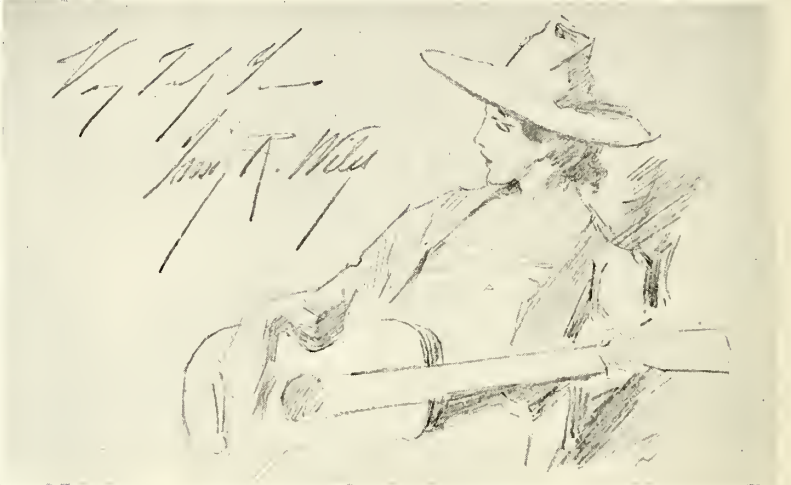 Very Truly Yours
Irving R. Wiles